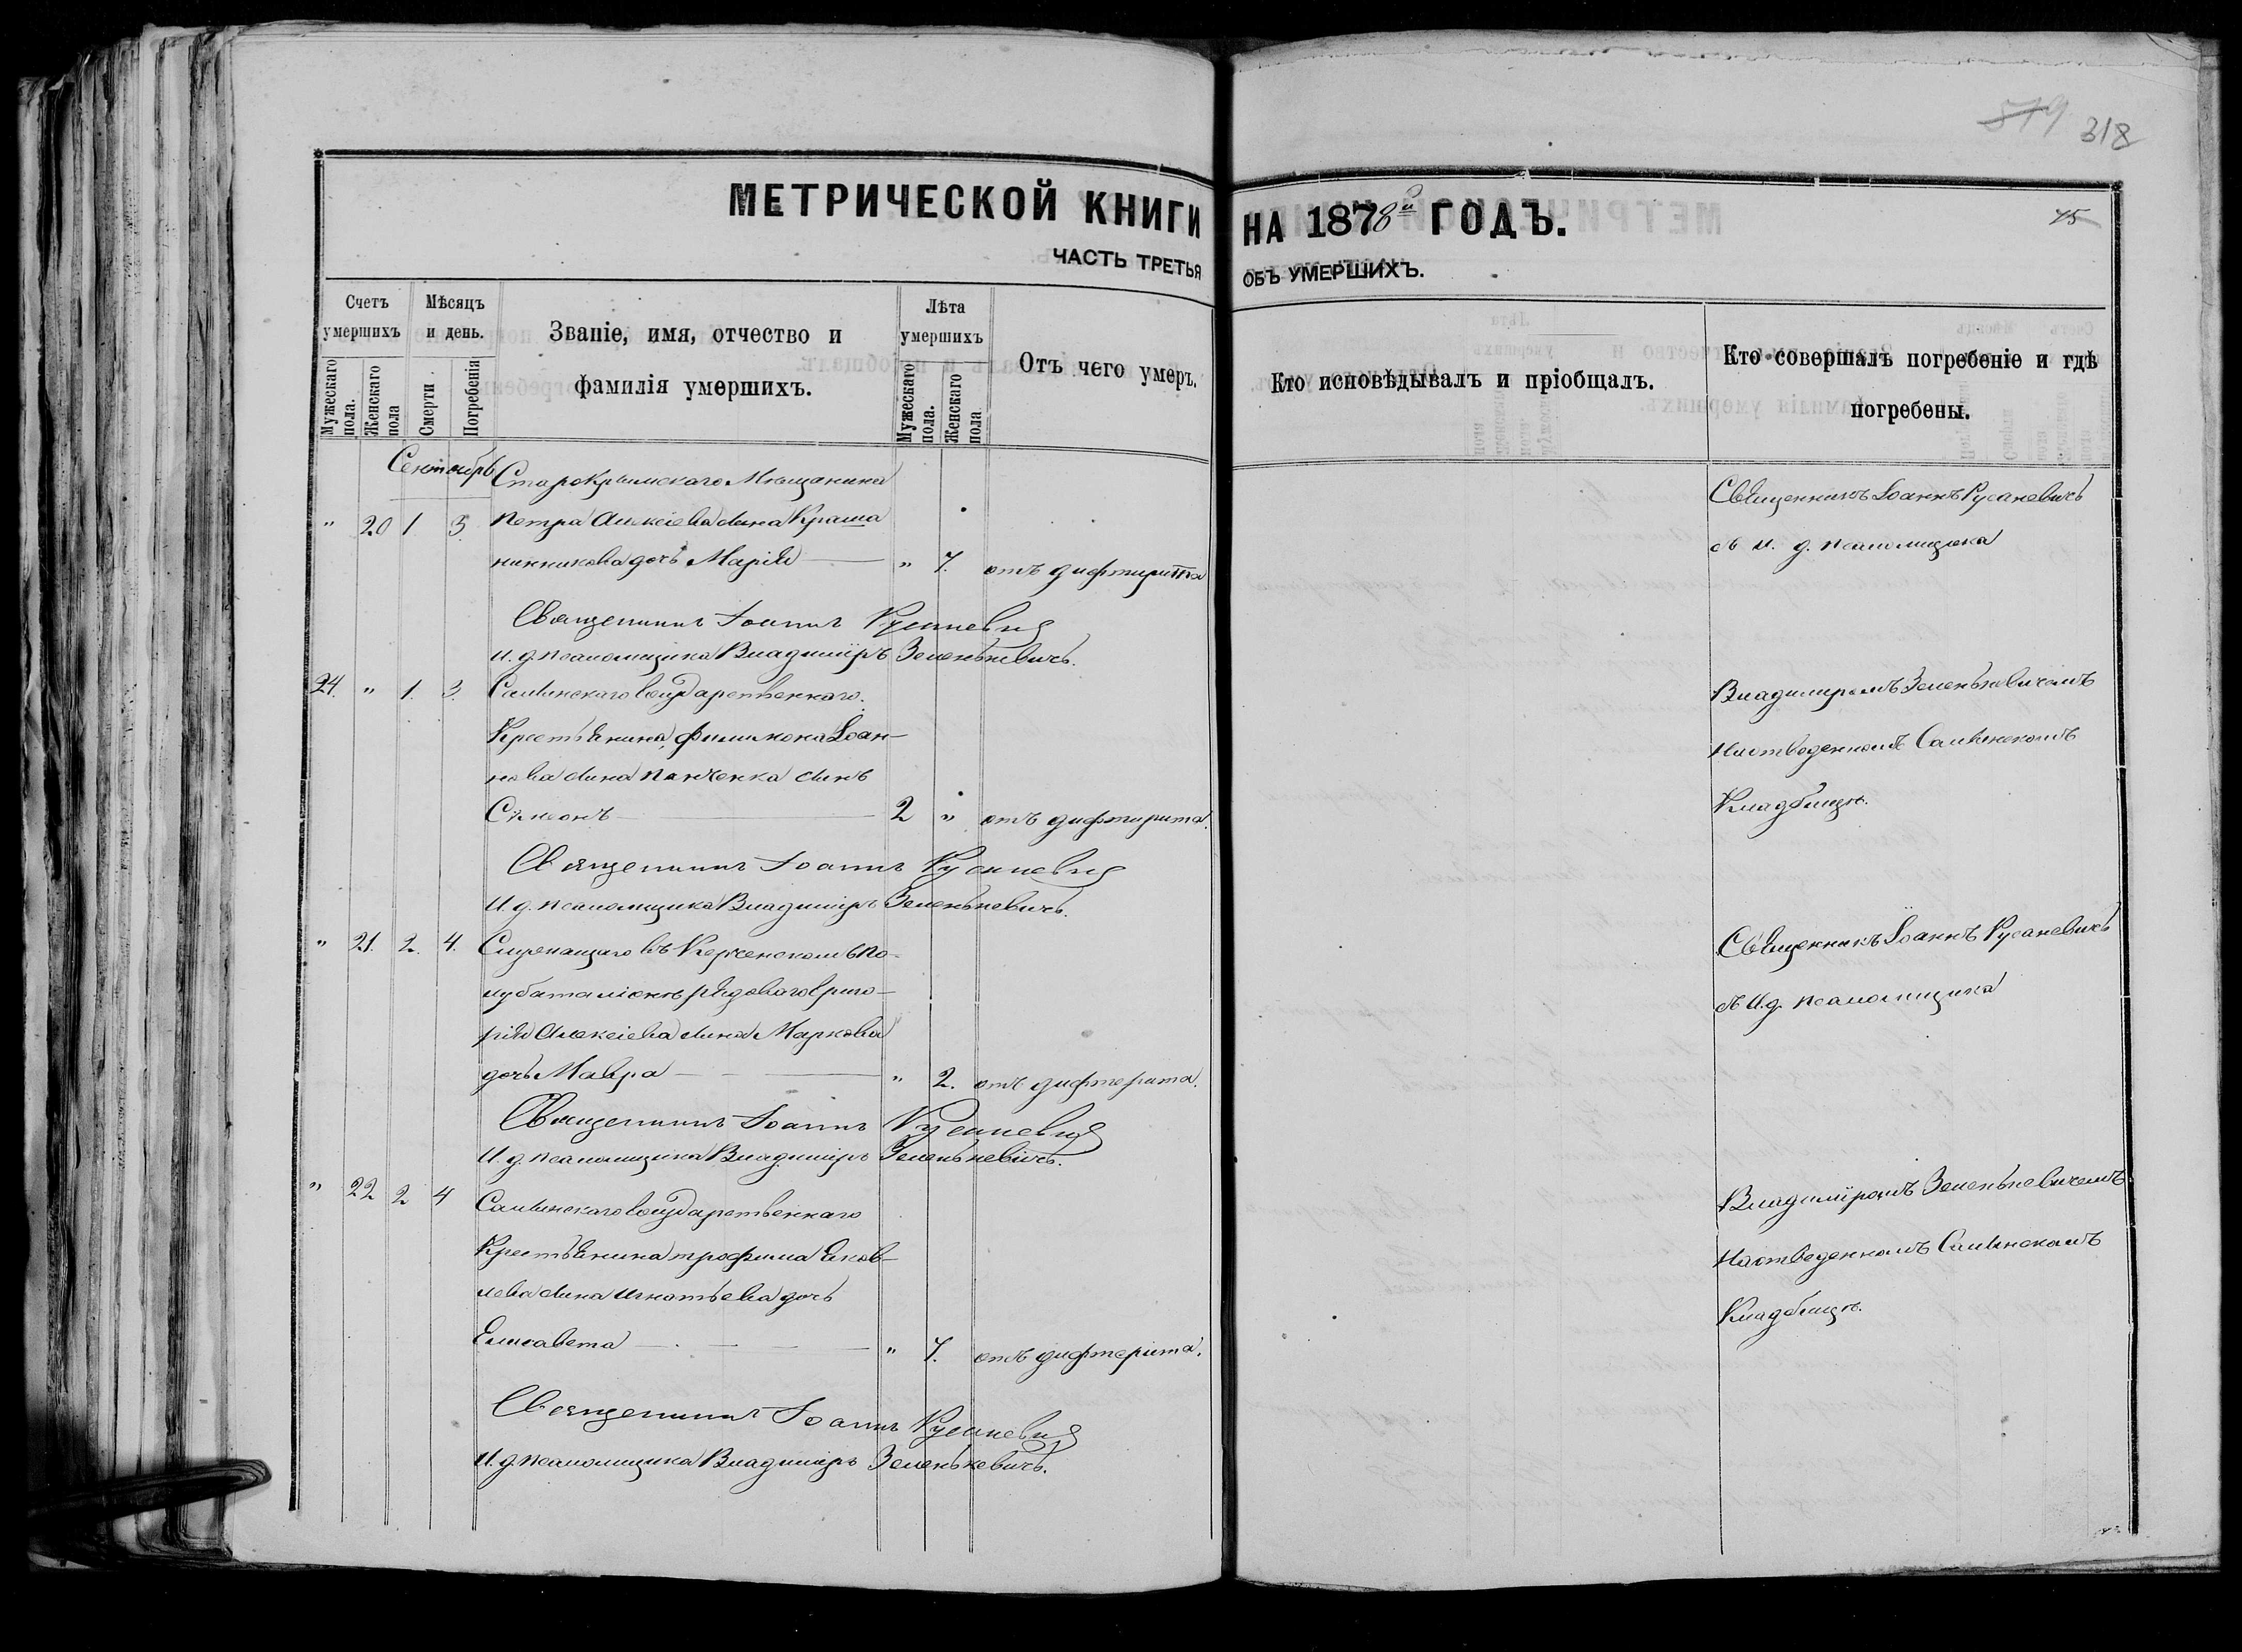 579 318
МЕТРИЧЕСКОЙ КНИГИ НА 1878й ГОДЪ.
45
ЧАСТЬ ТРЕТЬЯ ОБЪ УМЕРШИХЪ.
Счетъ умершихъ
Мужескаго пола.
Женскаго пола
Мѣсяцъ и день.
Смерти
Погребенія
Званіе, имя, отчество и
фамилія умершихъ.
Лѣта умершихъ
Мужескаго пола.
Женскаго пола
Отъ чего умеръ.
Кто исповѣдывалъ и пріобщалъ.
Кто совершалъ погребеніе и гдѣ
погребены.
Сентябрь
Старокрымскаго Мѣщанина
" 20 1 3 Петра Алексіева сына Краша
нинникова дочь Марія " 7. отъ дифтирита
Священникъ Іоаннъ Русаневичъ
И. д. псаломщика Владиміръ Зеленькевичъ.
24. " 1. 3. Салынскаго Государственнаго
Крестьянина, филимона Іоан-
нова сына Панченка сынъ
Сѵмеонъ 2 " отъ дифтирита.
Священникъ Іоаннъ Русаневичъ
И. д. псаломщика Владиміръ Зеленькевичъ.
" 21. 2. 4. Служащаго въ Керченскомъ по-
лубаталіонѣ рядоваго Григо-
рія Алексіева сына Маркова
дочь Мавра " 2. отъ дифтерита.
Священникъ Іоаннъ Русаневичъ
И. д. псаломщика Владиміръ Зеленькевичъ.
" 22 2 4 Салынскаго Государственнаго
Крестьянина трофима Яков-
лева сына Игнатьева дочь
Елисавета " 7. отъ дифтерита.
Священникъ Іоаннъ Русаневичъ
И. д. псаломщика Владиміръ Зеленькевичъ.
Священникъ Іоаннъ Русаневичъ
съ и. д. псаломщика
Владимиромъ Зеленькевичемъ
На отведенномъ Салынскомъ
Кладбищѣ.
Священникъ Іоаннъ Русаневичъ
съ И. д. псаломщика
Владиміромъ Зеленькевичемъ
На отведенномъ Салынскомъ
Кладбищѣ.